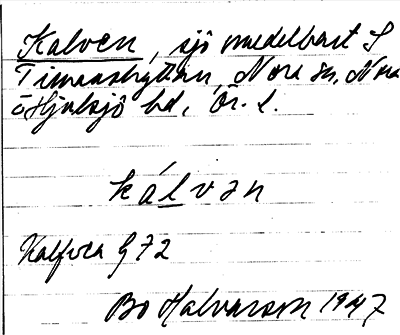 Kalven, sjö omedelbart S
Timanshyttan, Nora sn, Nora
o Hjulsjö bd, Ör. l.
kálvən
Kalfven G 72
Bo Halvarson 1947